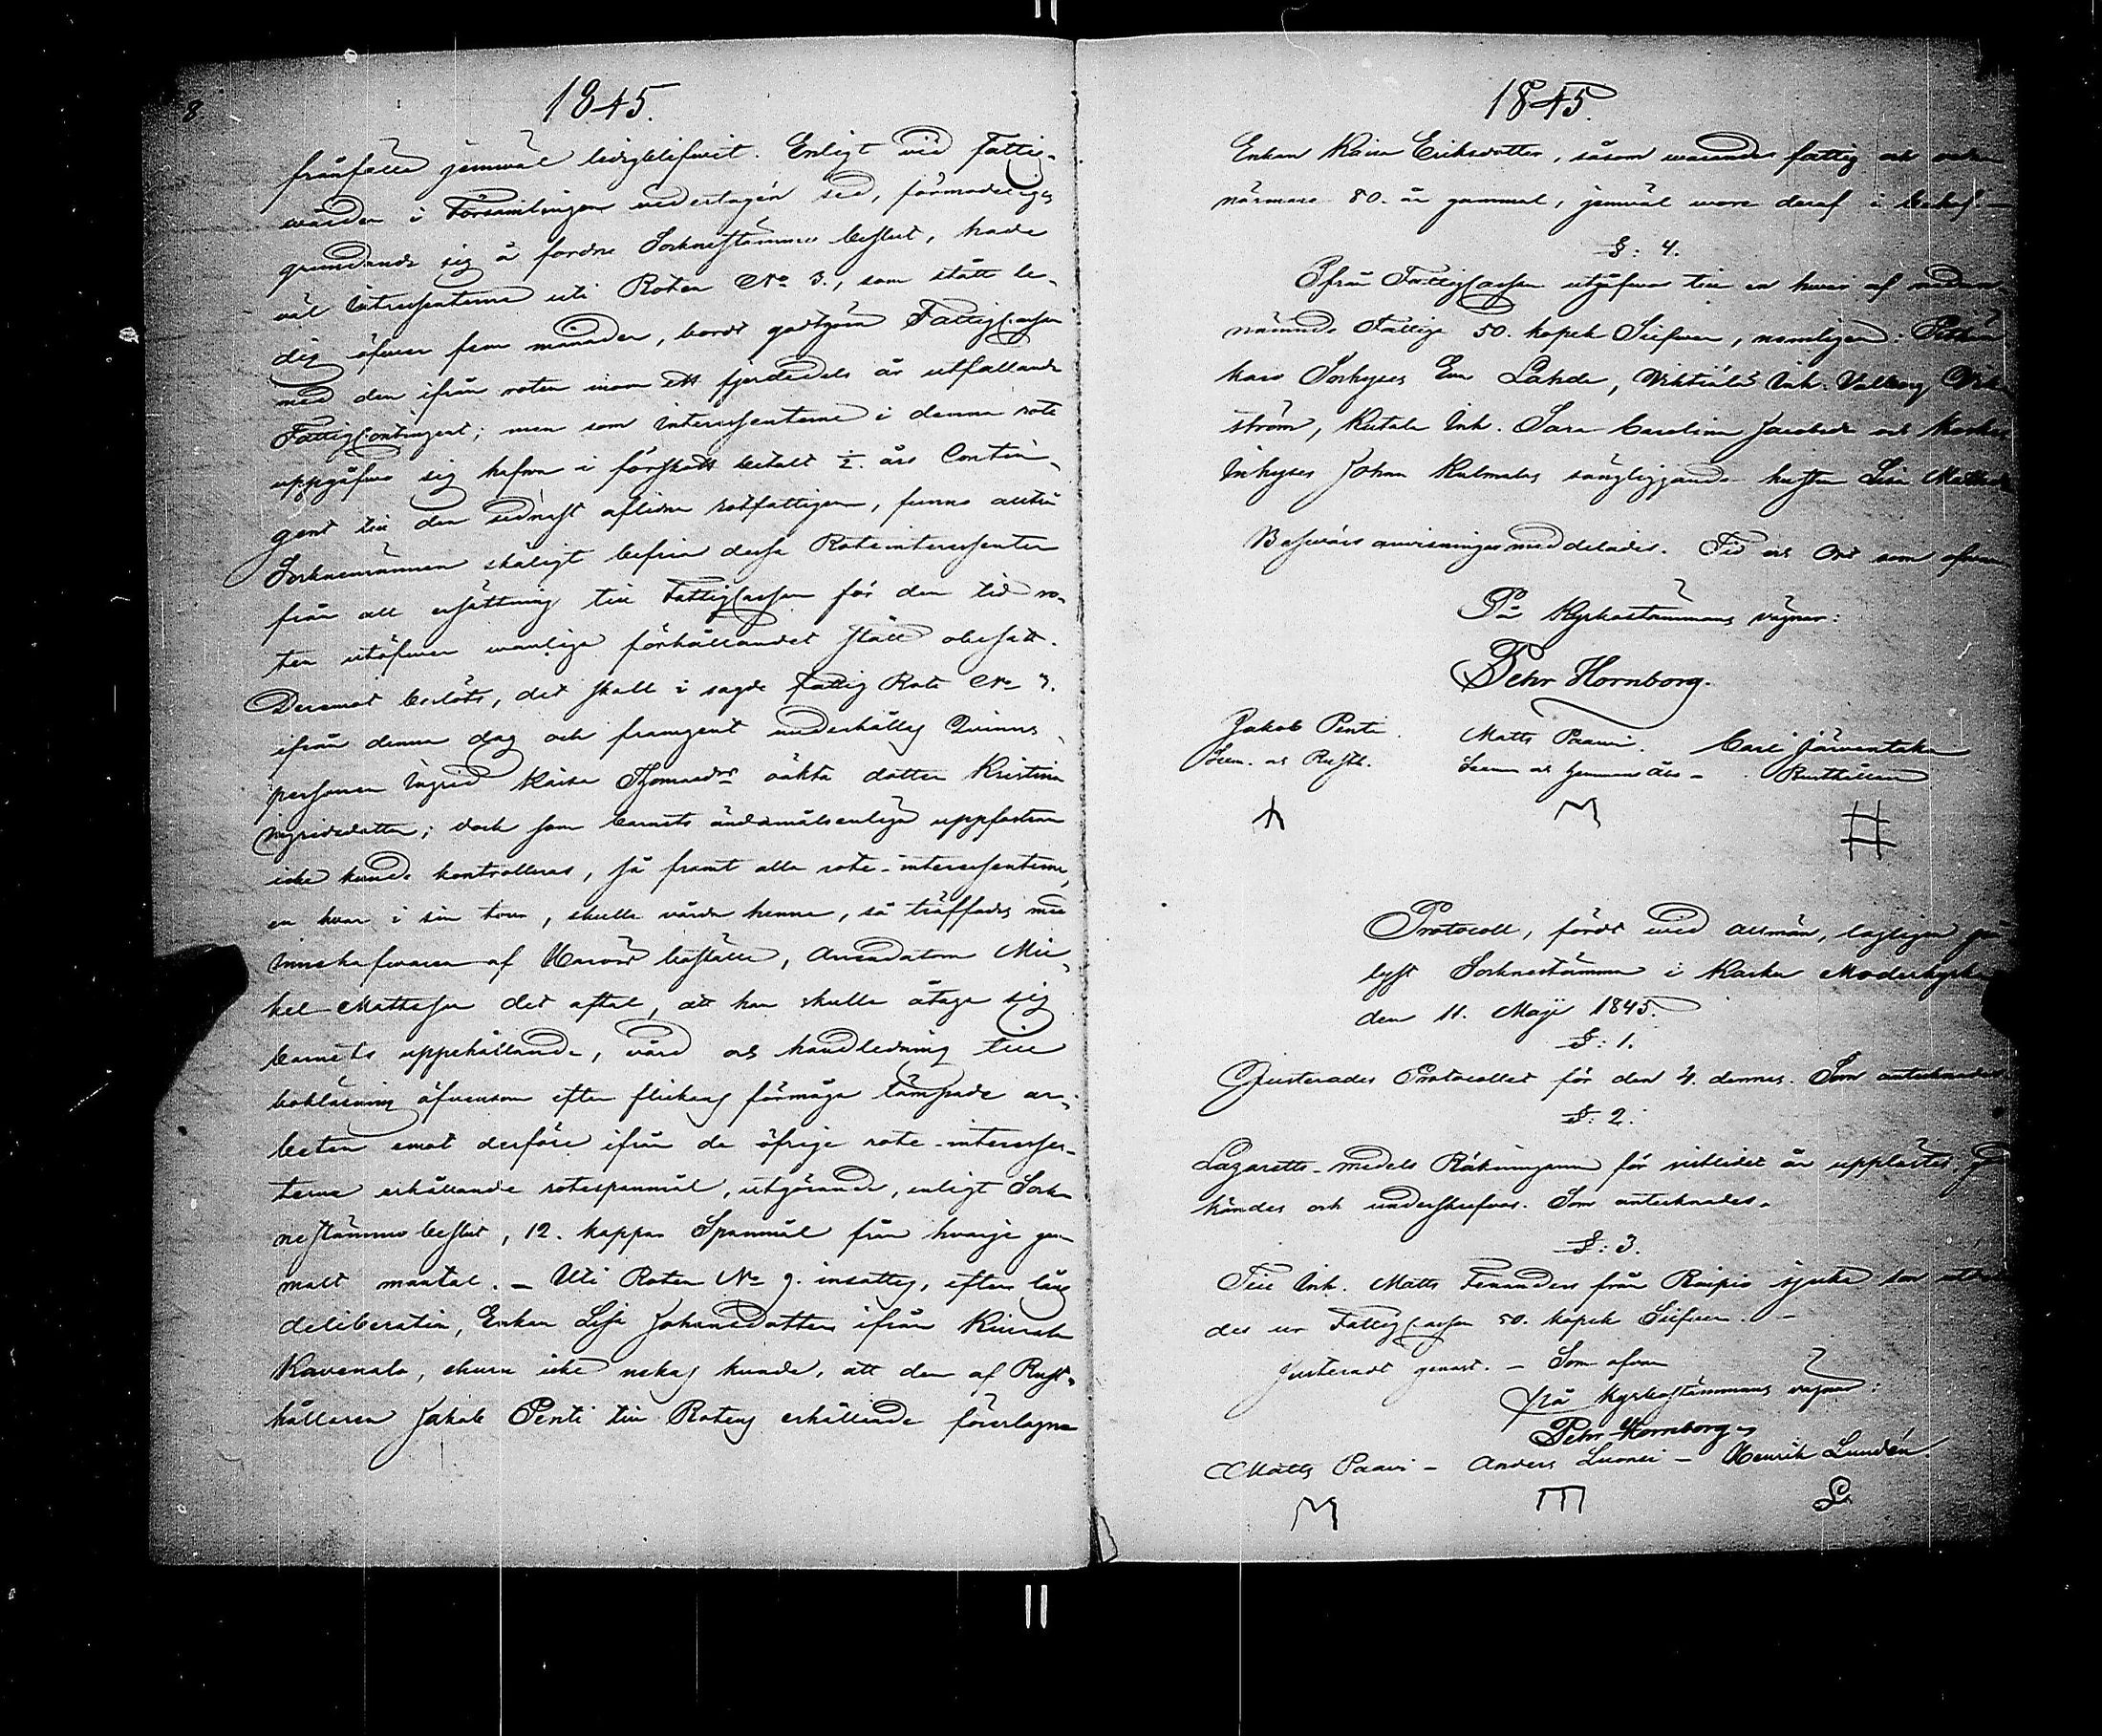 8
1845.
frånfälle jemwäl ledigblifwit. Enligt wid Fattig-
wården i Församlingen wedertagen sed, förmodeligen
grundande sig å fordne Sockneståmmo beslut, hade
väl Intressenterne uti Roten No 3., som stått le-
dig öfwer fem månader, bordt godtgöra Fattigcassan
med den ifrån roten inom ett fjerdedels år utfallande
Fattigcontingent; men som interessenterne i denna rote
uppgåfwo sig hafwa i förskott betalt ½. års Contin-
gent till den sednast aflidne rotfattigen, funno alltså
Socknemännen skäligt befria desse Roteinteressenter
från all ersättning till Fattigcassan för den tid ro-
ten utöfwer wanliga förhållandet stått obesatt.
Deremot beslöts, det skall i sagde Fattig Rote No 3.
ifrån denna dag och framgent underhållas Qvinns-
personen Ingrid Kaisa Thomasdrs oäkta dotter Kristina
Ingridsdotter; dock som barnets ändamålsenliga uppfostran
icke kunde kontrolleras, så framt alla rote-interessenterne,
en hvar i sin tour, skulle vårda henne, så träffades med
innehafwaren af boställe, Arrendatorn Mic-
kel Mattsson det aftal, att han skulle åtaga sig
barnets uppehållande, vård och handledning till
bokläsning äfvensom efter flickans förmåga lämpade ar-
beten emot derföre ifrån de öfrige rote-interessen-
terne erhållande rotespanmål, utgörande, enligt Sock-
nestämmo beslut, 12. kappar Spanmål från hvarje gam-
malt mantal. - Uti Roten No 9. insattes, efter lång
deliberation, Enkan Lisa Johansdotter ifrån
Kavenala, ehuru icke nekas kunde, att den af Rust-
hållaren Jakob Penti till Rotens erhållande föreslagne
1845.
Enkan Kaisa Eriksdotter, såsom warande fattig och
närmare 80. år gammal, jemwäl wore deraf i behof -
§: 4.
Ifrån Fattigcassan utgifwas till en hwar af nedan-
nämnde Fattige 50. kopek Silfwer, nemligen:
Lahde, Inh. Valborg Wik-
ström, Kutala Inh. Sara Carolina Jacobsdr och
Inhyses Johan Kulmalas sängliggande hustru Lisa Mattsdr
Besvärs anvisningen meddelades. Tid och Ort som ofwan
På Kyrkostämmans vägnar:
Pehr Hornborg.
Jakob Penti. Matts Paavi. Carl Järventaka
Rusth. Rusthållare
Protocoll, fördt wid allmän, lagligen på-
lyst Socknestämma i Karku Moderkyrka
den 11. Maji 1845.
§: 1.
Justerades Protocollet för den 4. dennes. Som antecknades
§: 2.
Lazaretts-medels Räkningarne för sistlidet år upplästes, god-
kändes och underskrefwos. Som antecknades.
§: 3.
Till Inh. Matts från Roipio sjuka son utde-
des ur Fattigcassan 50. kopek Silfwer. -
Justeradt genast. - Som ofwan
På Kyrkostämmans vägnar:
Pehr Hornborg
Matts Paavi - Anders - Henrik Lundén